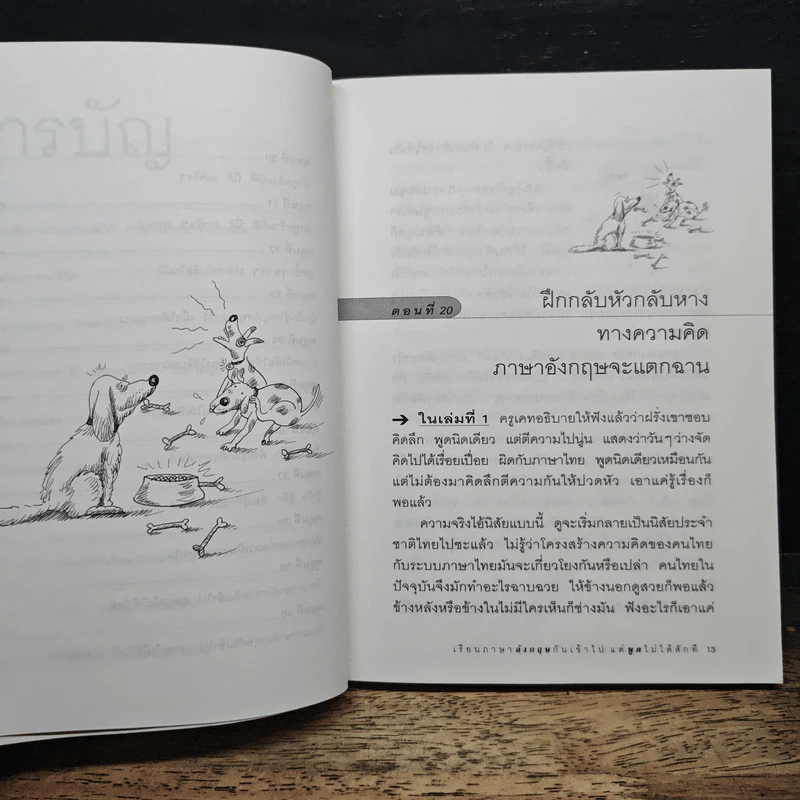 ารบัญ
ตอนที่ 20
ฝึกกลับหัวกลับหาง
ทางความคิด
ภาษาอังกฤษจะแตกฉาน
➔ ในเล่มที่ 1 ครูเคทอธิบายให้ฟังแล้วว่าฝรั่งเขาชอบ
คิดลึก พูดนิดเดียว แต่ตีความไปนู่น แสดงว่าวันๆว่างจัด
คิดไปได้เรื่อยเปื่อย ผิดกับภาษาไทย พูดนิดเดียวเหมือนกัน
แต่ไม่ต้องมาคิดลึกตีความกันให้ปวดหัว เอาแค่รู้เรื่องก็
พอแล้ว
ความจริงไอ้นิสัยแบบนี้ ดูจะเริ่มกลายเป็นนิสัยประจำ
ชาติไทยไปซะแล้ว ไม่รู้ว่าโครงสร้างความคิดของคนไทย
กับระบบภาษาไทยมันจะเกี่ยวโยงกันหรือเปล่า คนไทยใน
ปัจจุบันจึงมักทำอะไรฉาบฉวย ให้ข้างนอกดูสวยก็พอแล้ว
ข้างหลังหรือข้างในไม่มีใครเห็นก็ช่างมัน ฟังอะไรก็เอาแค่
เรียนภาษาอังกฤษกันเข้าไป แต่พูดไม่ได้สักที 13